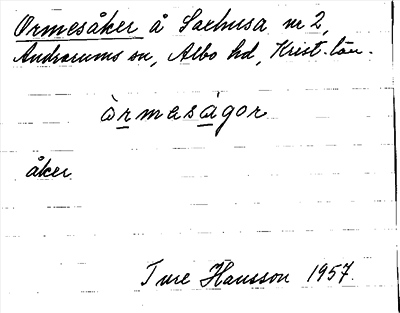 Ormesåker å Saxhusa nr 2,
Andrarums sn, Albo hd, Krist. län.
òrmesàgor
åker
Ture Hansson 1957.